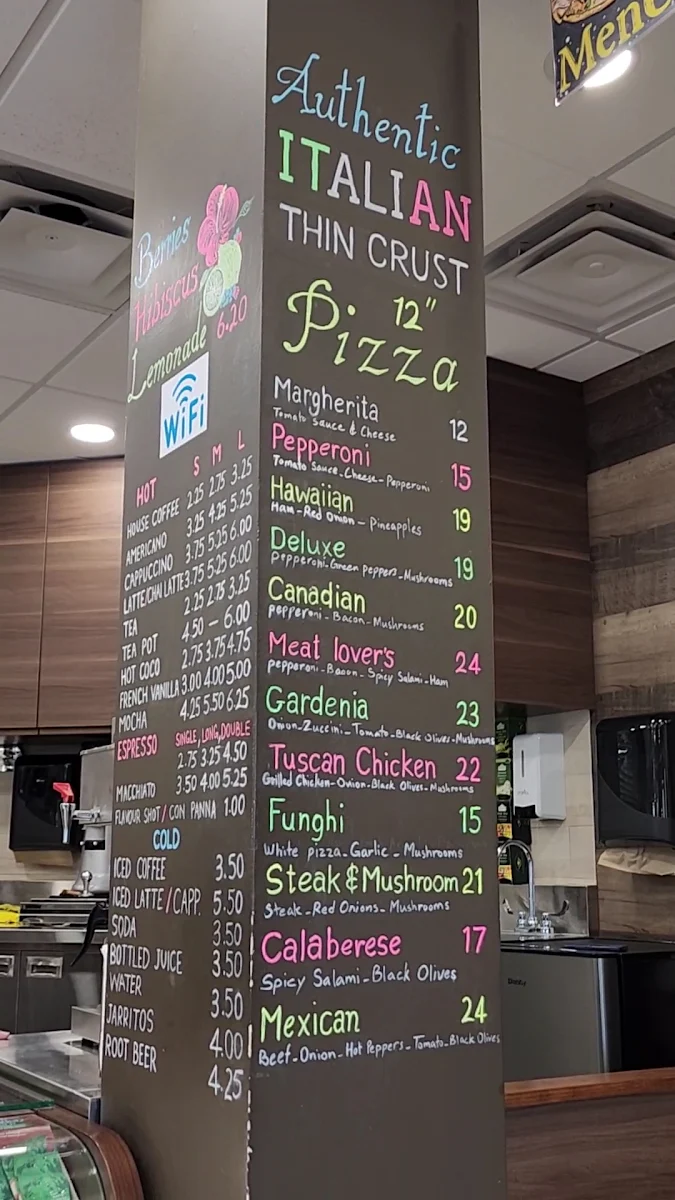 Menc
Berries
Hibiscus
Lemonade 6.20
WiFi
HOT S M L
HOUSE COFFEE 2.25 2.75 3.25
AMERICANO 3.25 4.25 5.25
CAPPUCCINO 3.75 5.25 6.00
LATTE/CHAI LATTE 3.75 5.25 6.00
TEA 2.25 2.75 3.25
TEA POT 4.50 – 6.00
HOT COCO 2.75 3.75 4.75
FRENCH VANILLA 3.00 4.00 5.00
MOCHA 4.25 5.50 6.25
ESPRESSO SINGLE, LONG, DOUBLE
2.75 3.25 4.50
MACCHIATO 3.50 4.00 5.25
FLAVOUR SHOT/CON PANNA 1.00
COLD
ICED COFFEE 3.50
ICED LATTE/CAPP. 5.50
SODA 3.50
BOTTLED JUICE 3.50
WATER 3.50
JARRITOS 4.00
ROOT BEER 4.25
Authentic
ITALIAN
THIN CRUST
12"
Pizza
Margherita 12
Tomato Sauce & Cheese
Pepperoni 15
Tomato Sauce-Cheese-Pepperoni
Hawaiian 19
Ham-Red Onion-Pineapples
Deluxe 19
Pepperoni-Green peppers-Mushrooms
Canadian 20
pepperoni-Bacon-Mushrooms
Meat lover's 24
pepperoni-Bacon-Spicy Salami-Ham
Gardenia 23
Onion-Zuccini-Tomato-Black Olives-Mushrooms
Tuscan Chicken 22
Grilled Chicken-Onion-Black Olives-Mushrooms
Funghi 15
White pizza-Garlic-Mushrooms
Steak & Mushroom 21
Steak-Red Onions-Mushrooms
Calaberese 17
Spicy Salami-Black Olives
Mexican 24
Beef-Onion-Hot Peppers-Tomato-Black Olives